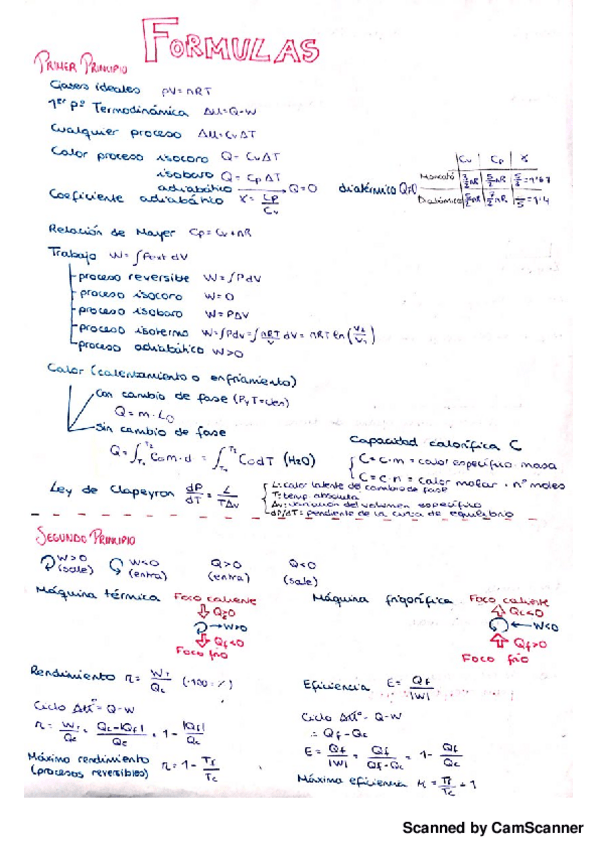 FORMULAS
PRIMER PRINCIPIO
Gases ideales pV = nRT
1er pº Termodinámica ΔU = Q - W
Cualquier proceso ΔU = CvΔT
Calor proceso isocoro Q = CvΔT
isobaro Q = CpΔT
adiabático → Q = 0
Coeficiente adiabático γ = Cp/Cv
diatérmico Q≠0
Cv | Cp | γ
Monoató | 3/2 nR | 5/2 nR | 5/3 = 1'67
Diatómico | 5/2 nR | 7/2 nR | 7/5 = 1'4
Relación de Mayer Cp = Cv + nR
Trabajo W = ∫Pext dV
proceso reversible W = ∫PdV
proceso isocoro W = 0
proceso isobaro W = PΔV
proceso isotermo W = ∫PdV = ∫ nRT/V dV = nRT ln (V2/V1)
proceso adiabático W>0
Calor (calentamiento o enfriamiento)
Con cambio de fase
Q = m·L
Sin cambio de fase
Capacidad calorífica C
C = c·m = calor específico · masa
C = c·n = calor molar · nº moles
Ley de Clapeyron dP/dT = L/TΔv
L: calor latente de cambio de fase
T: temp. absoluta
Δv: variación del volumen específico
dP/dT: pendiente de la curva de equilibrio
SEGUNDO PRINCIPIO
W>0 (sale) W<0 (entra) Q>0 (entra) Q<0 (sale)
Máquina térmica Foco caliente
W>0
Qf<0
Foco frío
Máquina frigorífica Foco caliente
Qc<0
W<0
Qf>0
Foco frío
Rendimiento η = WT/Qc (·100 = %)
Ciclo = Q - W
η = WT/Qc = Qc-|Qf|/Qc = 1 - |Qf|/Qc
Máximo rendimiento (procesos reversibles) η = 1 - Tf/Tc
Eficiencia E = Qf/|W|
Ciclo = Q - W
∴ Qf - Qc
Máxima eficiencia
Scanned by CamScanner